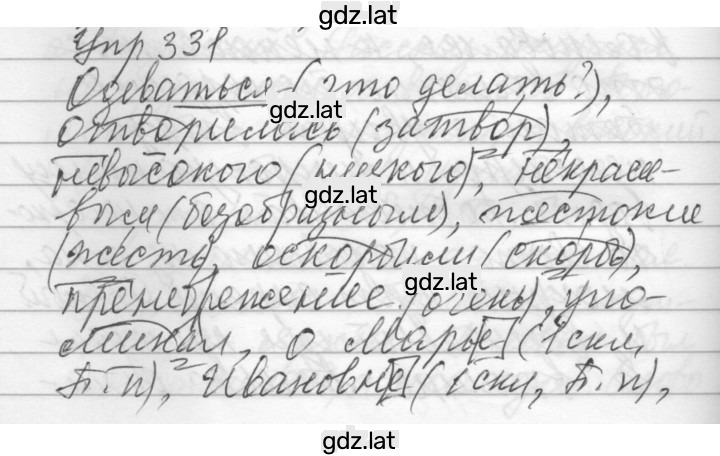 gdz.lat
Упр 331
Одеваться - (что делать?),
gdz.lat
отворились (затвор),
невысокого (низкого), некраси-
gdz.lat
выми (безобразными), жестокие
(жесть), оскорбили (скорбь),
gdz.lat
пренебрежение (очень), упо-
минал, о Марье (1 скл,
П. п), Ивановне (1 скл, П. п),
gdz.lat